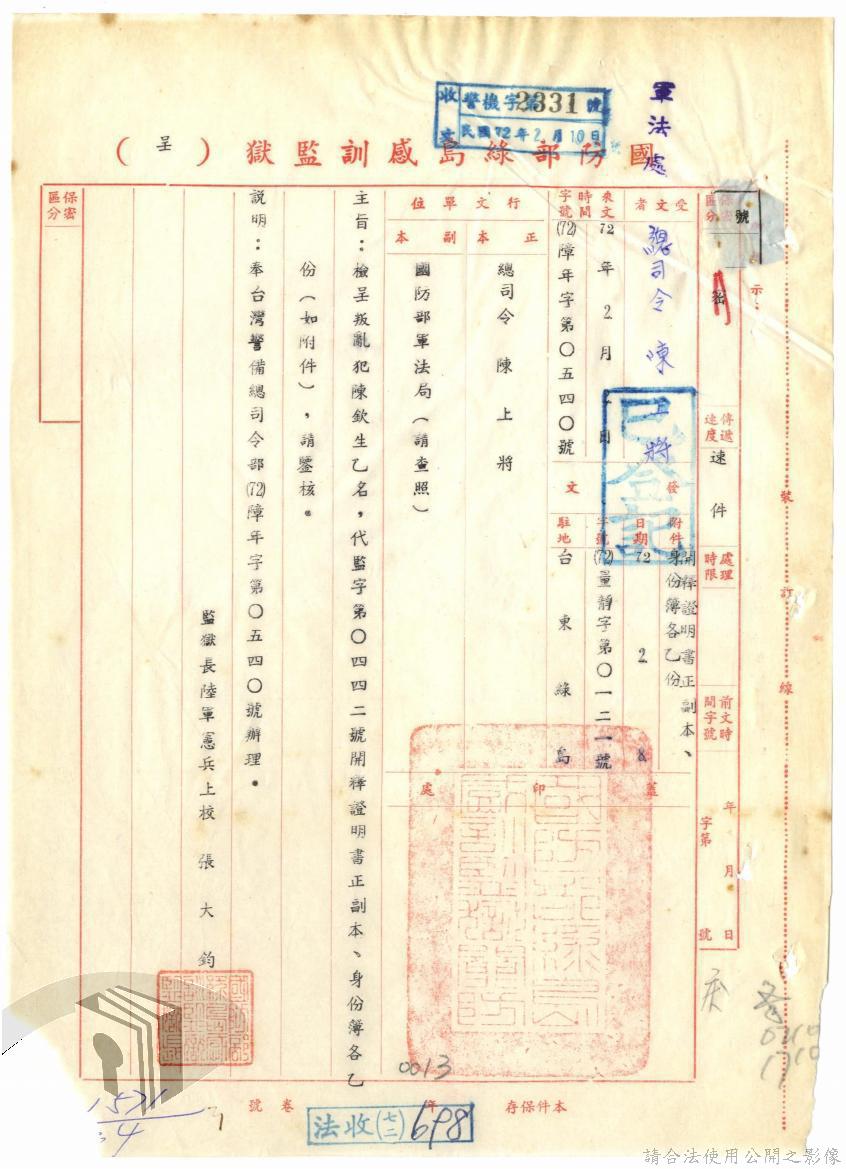 國防部綠島感訓監獄（呈）
軍法處
收文 警機字第2331號
民國72年2月10日
示：
保密區分
密
傳遞速度
速件
處理時限
前文時間字號
年 月 日
字第 號
受文者
總司令陳上將
來文
時間
72年2月 日
字號
(72)障年字第〇五四〇號
發文
附件
開釋證明書正副本、
身份簿各乙份
日期
72 2. 8
字號
(72)量靜字第〇一二一號
駐地
台東綠島
行文單位
正本
總司令陳上將
副本
國防部軍法局（請查照）
蓋印處
主旨：檢呈叛亂犯陳欽生乙名，代監字第〇四四二號開釋證明書正副本、身份簿各乙
份（如附件），請鑒核。
說明：奉台灣警備總司令部(72)障年字第〇五四〇號辦理。
監獄長陸軍憲兵上校 張大鈞
保密區分
裝訂線
已登記
號
0013
本件保存 年
卷 號
法收(七二)698
1571
請合法使用公開之影像